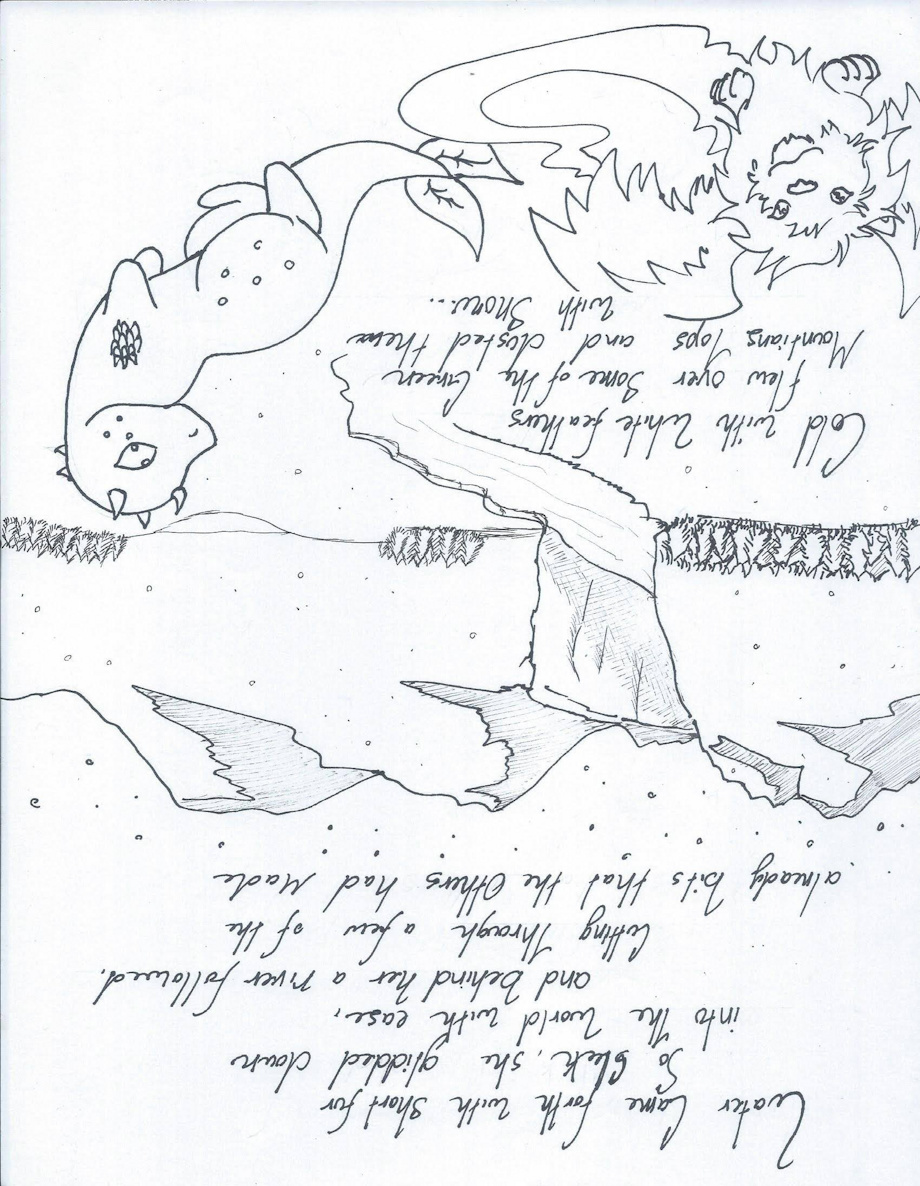 Water Came forth with Short fur
So Slick, she glidded down
into the World with ease,
and behind her a river followed.
Cutting Through a few of the
already bits that the Others had Made
Cold with White feathers
flew over Some of the Green
Mountians Tops and dusted them
with Snow...